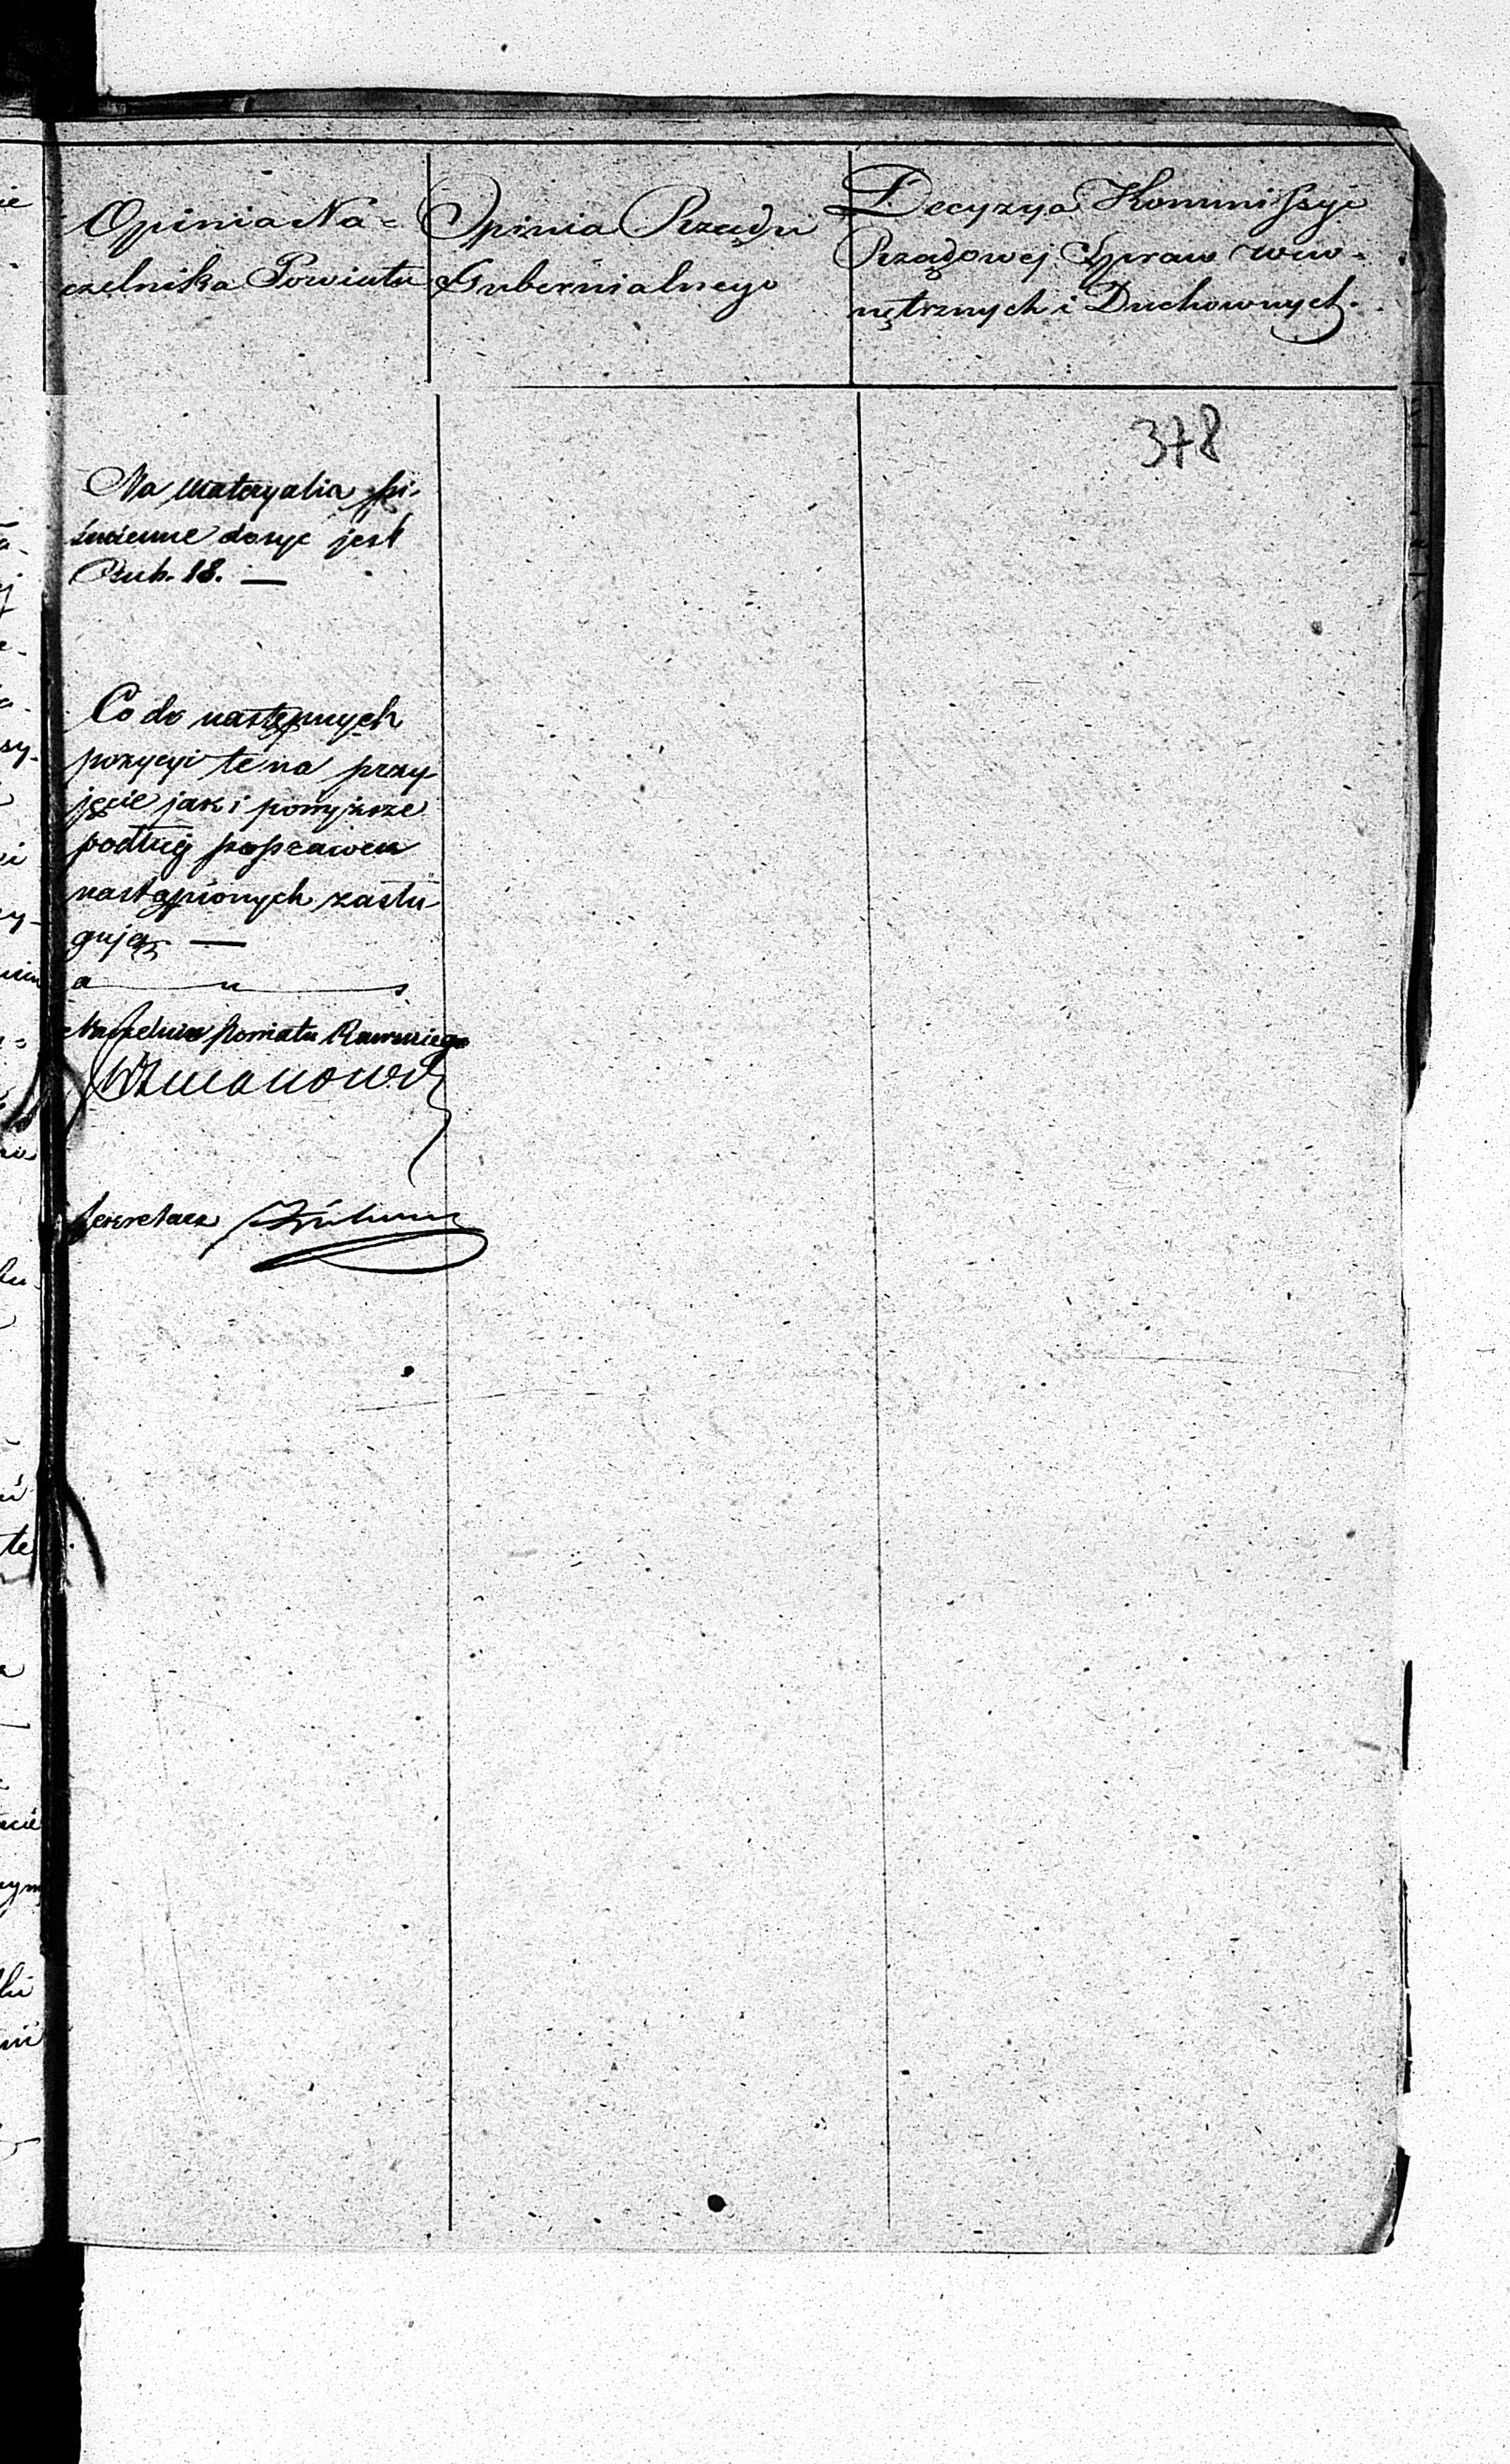 Opinia Na=
czelnika Powiatu
Opinia Rządu
Gubernialnego
Decyzya Kommissyi
Rządowej Spraw wew-
nętrznych i Duchownych.
378
Na materyalia pi-
śmienne dosyć jest
Rub. 18. —
Co do następnych
pozycyi te na przy-
jęcie jak i powyższe
podług poprawek
nastąpionych zasłu
gują —
Naczelnik Powiatu Rawskiego
Sekretarz